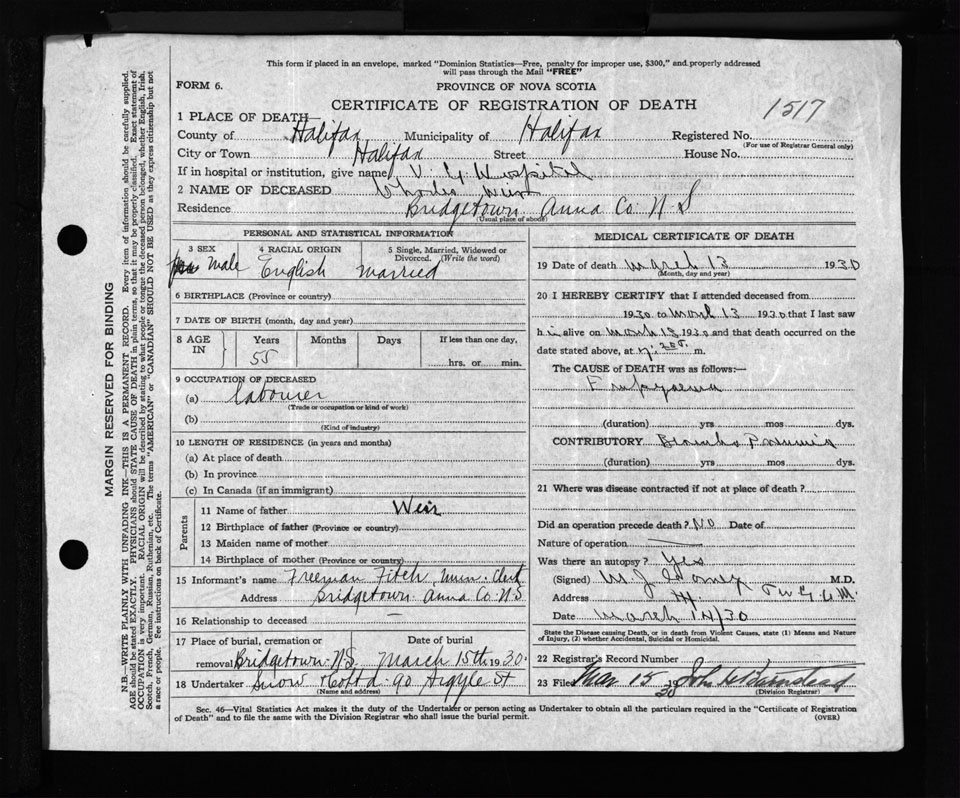 This form if placed in an envelope, marked "Dominion Statistics—Free, penalty for improper use, $300," and properly addressed
will pass through the Mail "FREE"
FORM 6.
PROVINCE OF NOVA SCOTIA
CERTIFICATE OF REGISTRATION OF DEATH
1517
1 PLACE OF DEATH—
County of Halifax Municipality of Halifax Registered No.
(For use of Registrar General only)
City or Town Halifax Street House No.
If in hospital or institution, give name V. G. Hospital
2 NAME OF DECEASED Charles Weir
Residence Bridgetown Anna Co. N S
(Usual place of abode)
PERSONAL AND STATISTICAL INFORMATION
3 SEX 4 RACIAL ORIGIN 5 Single, Married, Widowed or
Divorced. (Write the word)
Male English Married
6 BIRTHPLACE (Province or country)
7 DATE OF BIRTH (month, day and year)
8 AGE IN Years Months Days If less than one day,
55 hrs. or min.
9 OCCUPATION OF DECEASED
(a) Labourer
(Trade or occupation or kind of work)
(b)
(Kind of industry)
10 LENGTH OF RESIDENCE (in years and months)
(a) At place of death
(b) In province
(c) In Canada (if an immigrant)
Parents
11 Name of father Weir
12 Birthplace of father (Province or country)
13 Maiden name of mother
14 Birthplace of mother (Province or country)
15 Informant's name Freeman Fitch Mun. Clerk
Address Bridgetown Anna Co N.S
16 Relationship to deceased —
17 Place of burial, cremation or Date of burial
removal Bridgetown N.S. March 15th 1930.
18 Undertaker Snow & Co Ltd 90 Argyle St
(Name and address)
MEDICAL CERTIFICATE OF DEATH
19 Date of death March 13 1930
(Month, day and year)
20 I HEREBY CERTIFY that I attended deceased from
1930 to March 13 1930 that I last saw
h im alive on March 13 1930 and that death occurred on the
date stated above, at m.
The CAUSE of DEATH was as follows:—
Empyaema
(duration) yrs mos dys.
CONTRIBUTORY Broncho Pneumonia
(duration) yrs. mos. dys.
21 Where was disease contracted if not at place of death?
Did an operation precede death? No Date of
Nature of operation
Was there an autopsy? Yes
(Signed) M. J. M.D.
Address
Date March 14/30
State the Disease causing Death, or in death from Violent Causes, state (1) Means and Nature
of Injury, (2) whether Accidental, Suicidal or Homicidal.
22 Registrar's Record Number
23 Filed Mar 15 30 John
(Division Registrar)
Sec. 46—Vital Statistics Act makes it the duty of the Undertaker or person acting as Undertaker to obtain all the particulars required in the "Certificate of Registration
of Death" and to file the same with the Division Registrar who shall issue the burial permit.
(OVER)
MARGIN RESERVED FOR BINDING
N.B.—WRITE PLAINLY WITH UNFADING INK—THIS IS A PERMANENT RECORD. Every item of information should be carefully supplied.
AGE should be stated EXACTLY. PHYSICIANS should STATE CAUSE OF DEATH in plain terms, so that it may be properly classified. Exact statement of
OCCUPATION is very important. RACIAL ORIGIN will be described by stating to what people or tongue the deceased person belonged, whether English, Irish,
Scotch, French, German, Russian, Ruthenian, etc. The terms "AMERICAN" or "CANADIAN" SHOULD NOT BE USED as they express citizenship but not
a race or people. See instructions on back of Certificate.